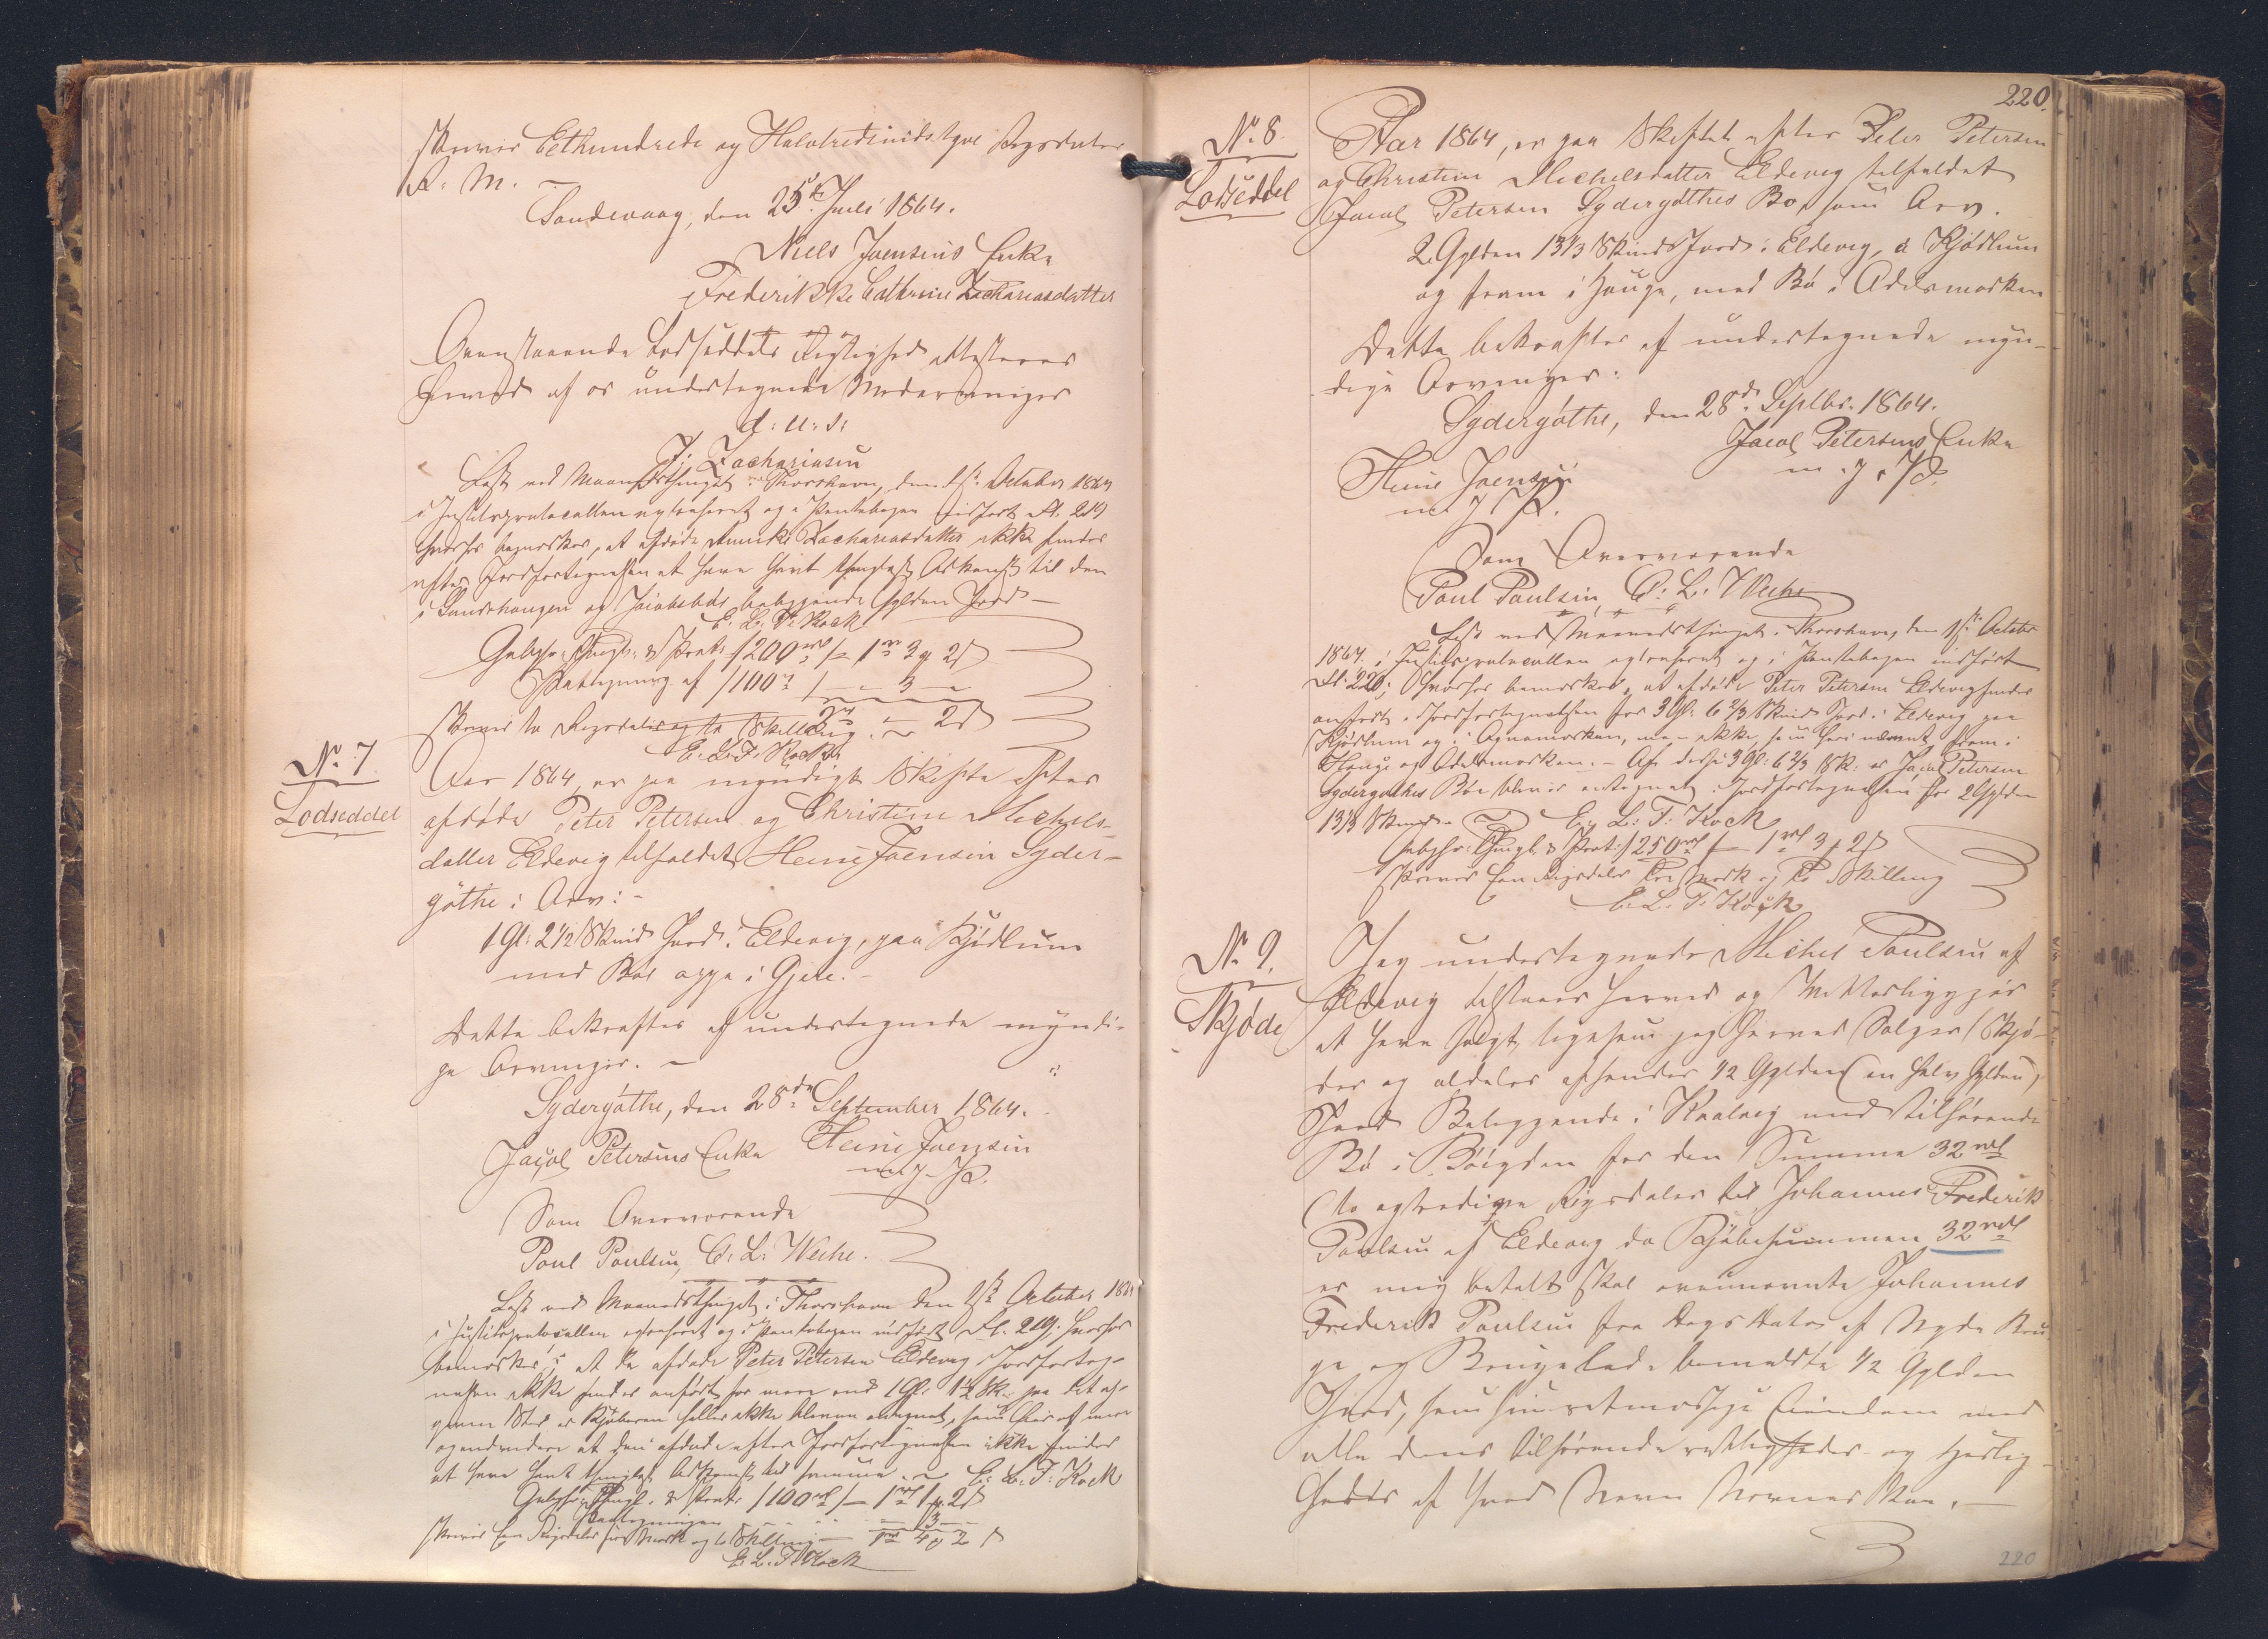 skriver Eethundrede og Halvtredsindstyve Rigsdaler
R: M. –
Sandevaag, den 25de Juli 1864.
Niels Joensens Enke
Frederikke Cathrine Zachariasdatter
Ovenstaaende Lodseddels Rigtighed attesteres
herved af os undertegnede Medarvinger
d: u: s:
J. Zachariasen
Læst ved Maanedsthinget i Thorshavn, den 1ste October 1864
i Justitsprotocollen extraheret og i Pantebogen indført Fl. 219
hvorhos bemærkes, at afdøde Zachariasdatter ikke findes
efter Jordfortegnelsen at have havt thinglæst Adkomst til den
i Sandehaugen og beliggende Gylden Jord –
E. L. T. Kock
Gebyhr: Thingl. & Prot. /200 rd/ – 1 rd 3 p 2 s
Paategning af /100 rd/ – 3 –
skriver to Rigsdaler og to Skilling. – 2 s
E. L. T. Kock
No 7
Lodseddel
Aar 1864, er paa myndigt Skifte efter
afdøde Peter Petersen og Christine Michels-
datter Eldevig tilfaldet Heine Joensen Syder-
gøthe i Arv: –
1 Gl: 2 1/2 Skind Jord i Eldevig, paa Kjødlum
med Bøe oppe i Gjere. –
Dette bekræftes af undertegnede myndi-
ge Arvinger. –
Sydergøthe, den 28de September 1864.
Jacob Petersens Enke Heine Joensen
m. f. P.
Som Overværende
Poul Poulsen, C. L. Weihe.
Læst ved Maanedsthinget i Thorshavn den 1ste October 1864
i Justitsprotocollen extraheret og i Pantebogen indført Fl. 219; hvorhos
bemærkes, at da afdøde Peter Petersen Eldevig i Jordforteg-
nelsen ikke findes anført for mere end 1 Gl. 1 1/2 Sk. paa det op-
givne Sted er Kjøberen heller ikke bleven antegnet, som Eier af mere
og endvidere at den afdøde efter Jordfortegnelsen ikke findes
at have havt thinglæst Adkomst til samme. – E. L. T. Kock
Gebyhr: Thingl. & Prot. /100 rd/ – 1 rd 1 p. 2 s
Paategningen – 3 –
skriver Een Rigsdaler fire Mark og to Skilling – 1 rd 4 p 2 s
E. L. T. Kock
220.
No 8.
Lodseddel
Aar 1864, er paa Skiftet efter Peter Petersen
og Christine Michelsdatter Eldevig tilfaldet
Jacob Petersen Sydergøthes Bo, som Arv.
2 Gylden 13 1/3 Skind Jord i Eldevig, a Kjødlum
og fram i Hauge, med Bø i Addemarken
Dette bekræftes af undertegnede myn-
dige Arvinger:
Sydergøthe, den 28de Septbr. 1864.
Jacob Petersens Enke
m. f. P.
Heine Joensen
m. f. P.
Som Overværende
Poul Poulsen, C. L. Weihe
Læst ved Maanedsthinget i Thorshavn, den 1ste October
1864. i Justitsprotocollen extraheret og i Pantebogen indført
Fl. 220; hvorhos bemærkes, at afdøde Peter Petersen Eldevig findes
anført i Jordfortegnelsen for 3 Gl. 6 2/3 Skind Jord i Eldevig paa
Kjødlum og i Agnemarken, men ikke, som heri nævnt fram i
Hauge og Addemarken. – Af disse 3 Gl. 6 2/3 Sk: er Jacob Petersen
Sydergøthes Bo bleven antegnet i Jordfortegnelsen for 2 Gylden
13 1/3 Skind. – E. L. T. Kock
Gebyhr: Thingl. & Prot. /250 rd/ – 1 rd 3 p 2 s
skriver Een Rigsdaler Tre Mark og To Skilling
E. L. T. Kock
No 9.
Skjøde
Jeg undertegnede Michel Poulsen af
Eldevig tilstaaer herved og Vitterliggjør
at have Solgt, ligesom jeg herved Sælger, Skjø-
der og aldeles afhænder 1/2 Gylden (en halv Gylden),
Jord Beliggende i Kaalvig med tilhørende
Bø i Bøigden for den Summa 32 rd
(to og tredive Rigsdaler til Johannes Frederik
Poulsen af Eldevig da Kjøbesummen 32 rd
er mig betalt skal ovennævnte Johannes
Frederik Poulsen fra Dags Dato af Nyde Bru-
ge og Brugelade bemeldte 1/2 Gylden
Jord, som sin retmæssige Eiendom med
alle dens tilhørende rettigheder og Herlig-
heder af hvad Navn Nævnes kan. –
220